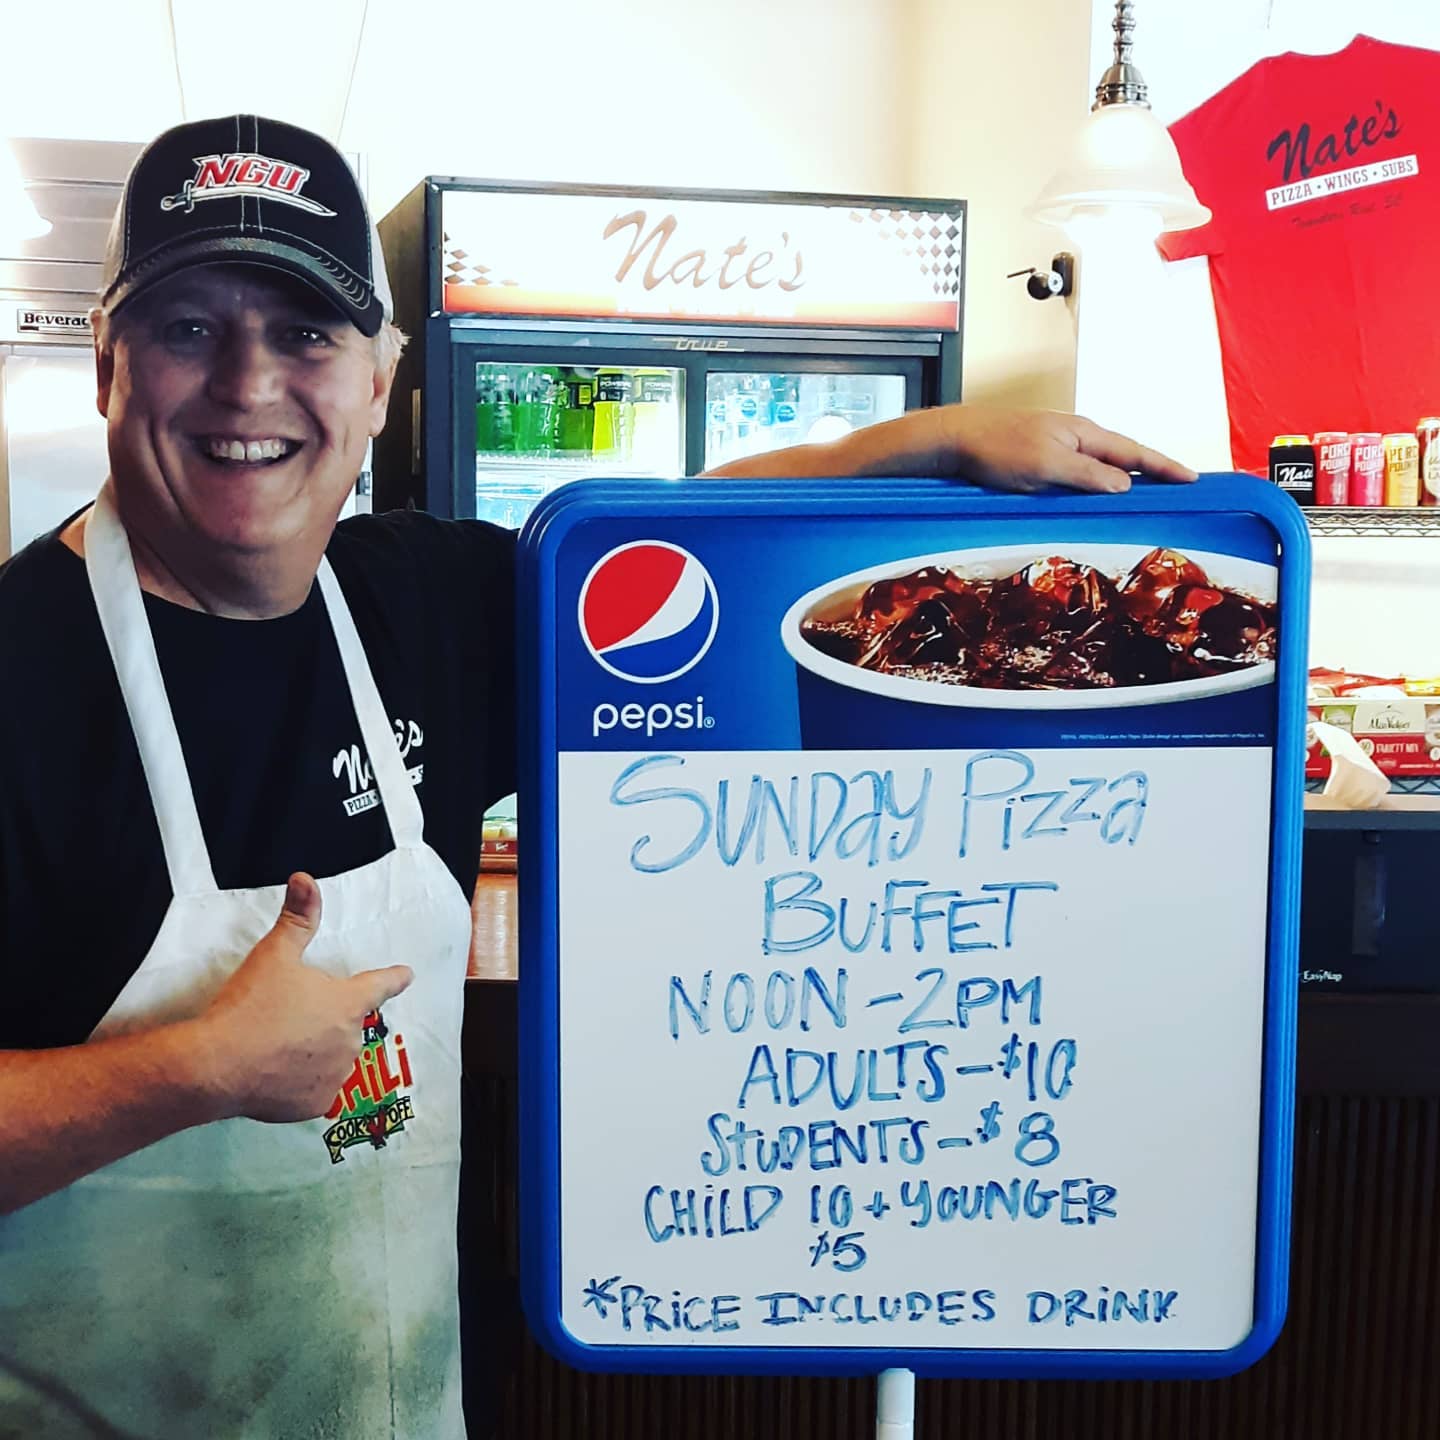 NGU
Nate's
true
Nate's
PIZZA • WINGS • SUBS
Travelers Rest, SC
pepsi®
SUNDAY PIZZA
BUFFET
NOON - 2PM
ADULTS - $10
STUDENTS - $8
CHILD 10 + YOUNGER
$5
*PRICE INCLUDES DRINK
PIZZA
CHILI
COOK OFF
VARIETY MIX
EasyNap